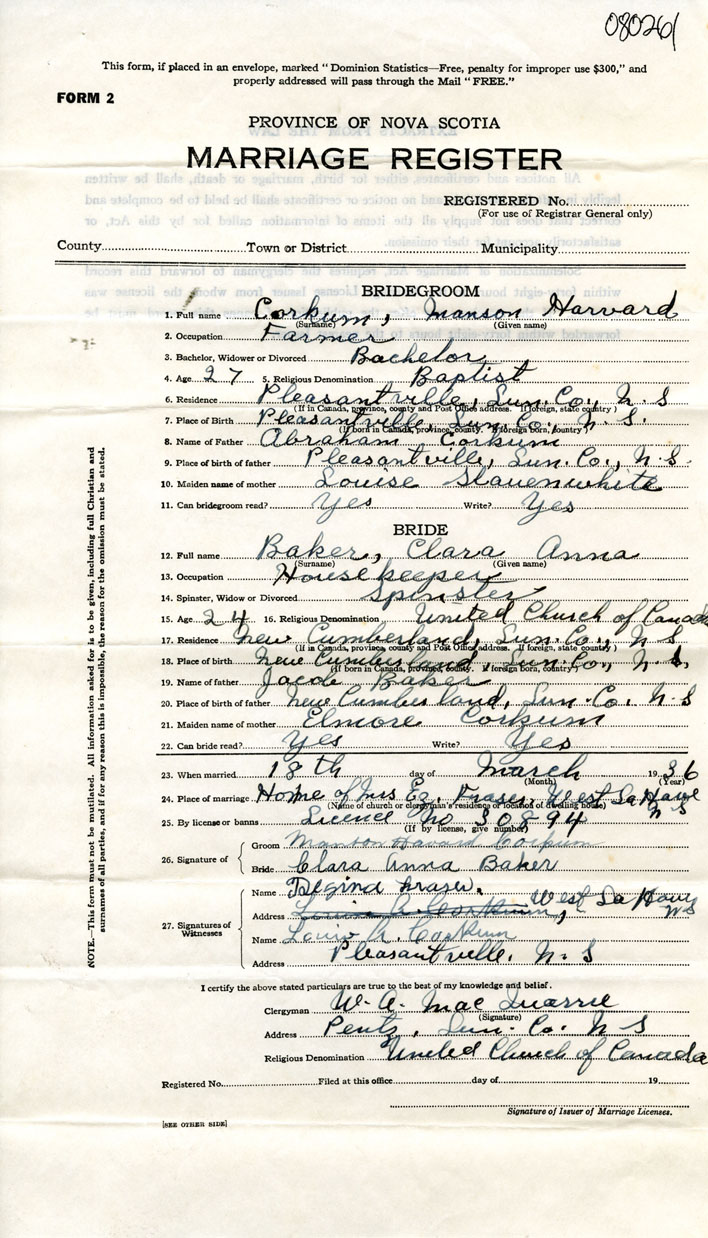 08026
This form, if placed in an envelope, marked "Dominion Statistics—Free, penalty for improper use $300," and
properly addressed will pass through the Mail "FREE."
FORM 2
PROVINCE OF NOVA SCOTIA
MARRIAGE REGISTER
REGISTERED No.
(For use of Registrar General only)
County Town or District Municipality
BRIDEGROOM
1. Full name Corkum, Manson Harvard
(Surname) (Given name)
2. Occupation Farmer
3. Bachelor, Widower or Divorced Bachelor
4. Age 27 5. Religious Denomination Baptist
6. Residence Pleasantville, Lun. Co., N. S
(If in Canada, province, county and Post Office address. If foreign, state country)
7. Place of Birth Pleasantville, Lun. Co., N. S.
(If born in Canada, province, county. If foreign born, country)
8. Name of Father Abraham Corkum
9. Place of birth of father Pleasantville, Lun. Co., N. S.
10. Maiden name of mother Louise Slauenwhite
11. Can bridegroom read? Yes Write? Yes
BRIDE
12. Full name Baker, Clara Anna
(Surname) (Given name)
13. Occupation Housekeeper
14. Spinster, Widow or Divorced Spinster
15. Age 24 16. Religious Denomination United Church of Canada
17. Residence New Cumberland, Lun. Co., N S
(If in Canada, province, county and Post Office address. If foreign, state country)
18. Place of birth New Cumberland, Lun. Co., N. S.
(If born in Canada, province, county. If foreign born, country)
19. Name of father Jacob Baker
20. Place of birth of father New Cumberland, Lun. Co. N. S
21. Maiden name of mother Elmore Corkum
22. Can bride read? Yes Write? Yes
23. When married 18th day of March 1936
(Month) (Year)
24. Place of marriage Home of Mrs Ez. Fraser, West La Have
N S
(Name of church or clergyman's residence or location of dwelling house)
25. By license or banns Licence No 30894
(If by license, give number)
26. Signature of
Groom Manson Havard Corkum
Bride Clara Anna Baker
27. Signatures of Witnesses
Name Regina Fraser.
Address West La Have
N S
Name Louis A. Corkum
Address Pleasantville, N. S
I certify the above stated particulars are true to the best of my knowledge and belief.
Clergyman W. A. Mac Quarrie
(Signature)
Address Pentz, Lun. Co. N S
Religious Denomination United Church of Canada
Registered No. Filed at this office day of 19
Signature of Issuer of Marriage Licenses.
[SEE OTHER SIDE]
NOTE.—This form must not be mutilated. All information asked for is to be given, including full Christian and
surnames of all parties, and if for any reason this is impossible, the reason for the omission must be stated.